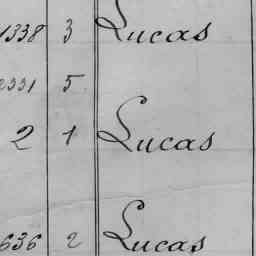 1338 3 Lucas
2331 5
2 1 Lucas
636 2 Lucas